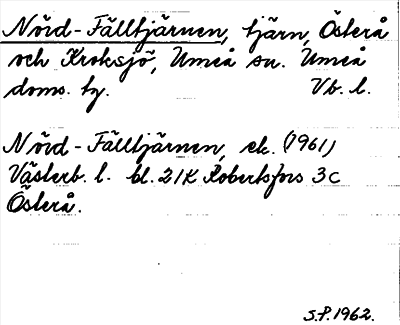 Nörd-Fälltjärnen, tjärn, Österå
och Kroksjö, Umeå sn. Umeå
doms. tg. Vb. l.
Nörd-Fälltjärnen, ek. (1961)
Västerb. l. bl. 21K Robertsfors 3c
Österå.
S.P. 1962.